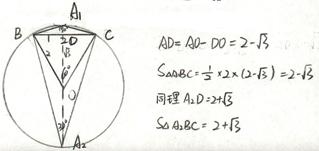 A₁
B C
1 2 D
2 √3
O
30°
A₂
AD = AO - DO = 2-√3
S△ABC = ½×2×(2-√3) = 2-√3
同理 A₂D = 2+√3
S△A₂BC = 2+√3